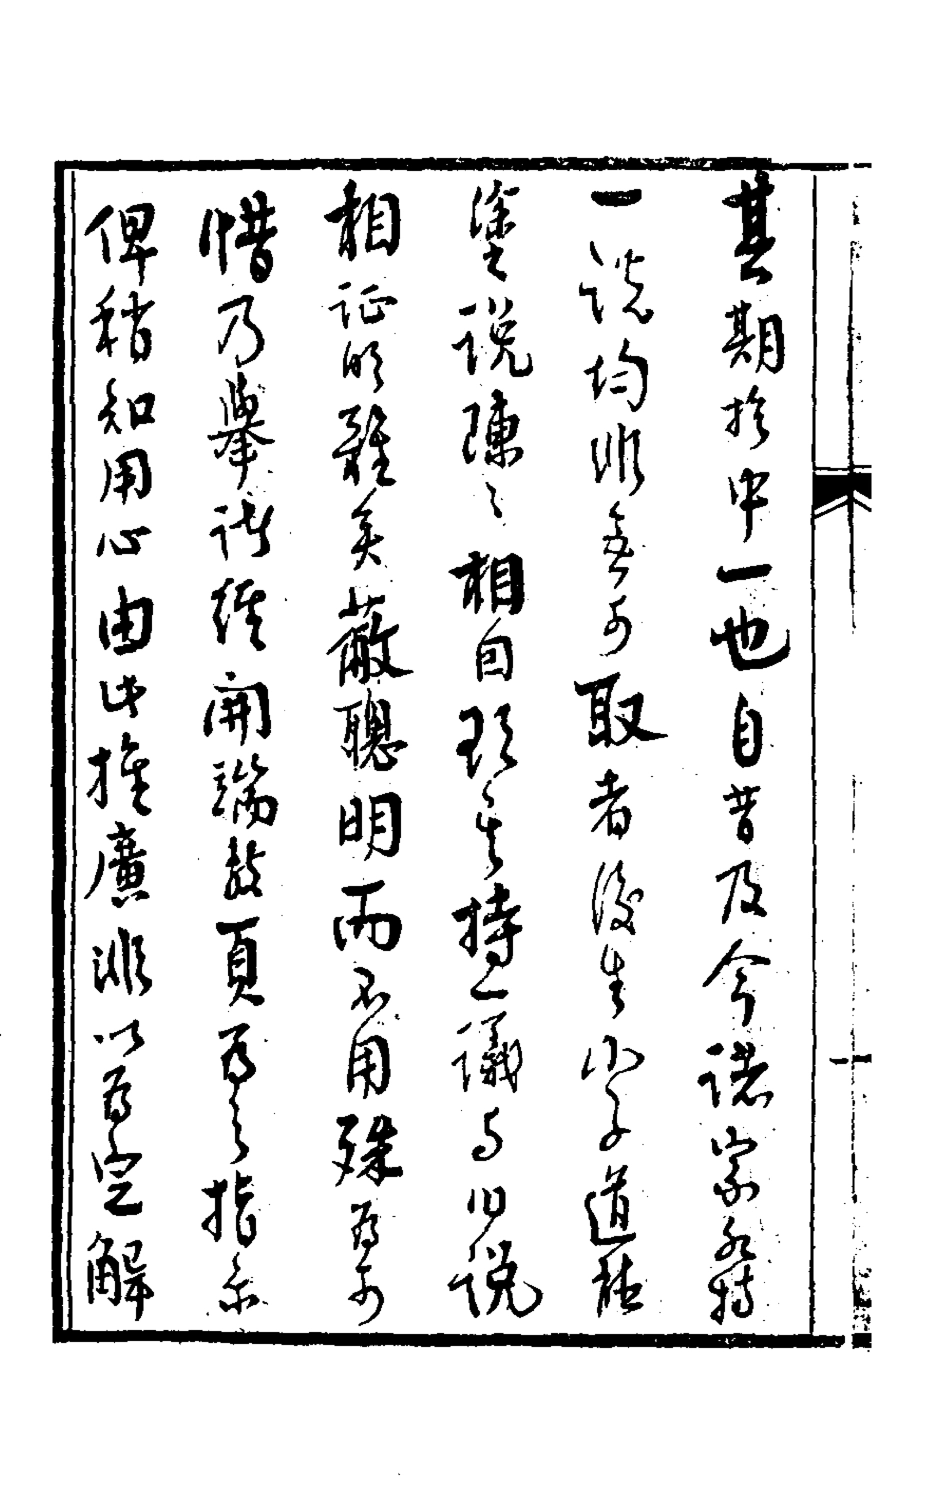 其期於中一也自昔及今諸家各持
一說均非無可取者後生小子道聽
塗說陳陳相因致其持一議与旧說
相証的難矣蔽聰明而不用殊為可
惜乃舉諸經開端数頁為之指示
俾稍知用心由此推廣非以為定解